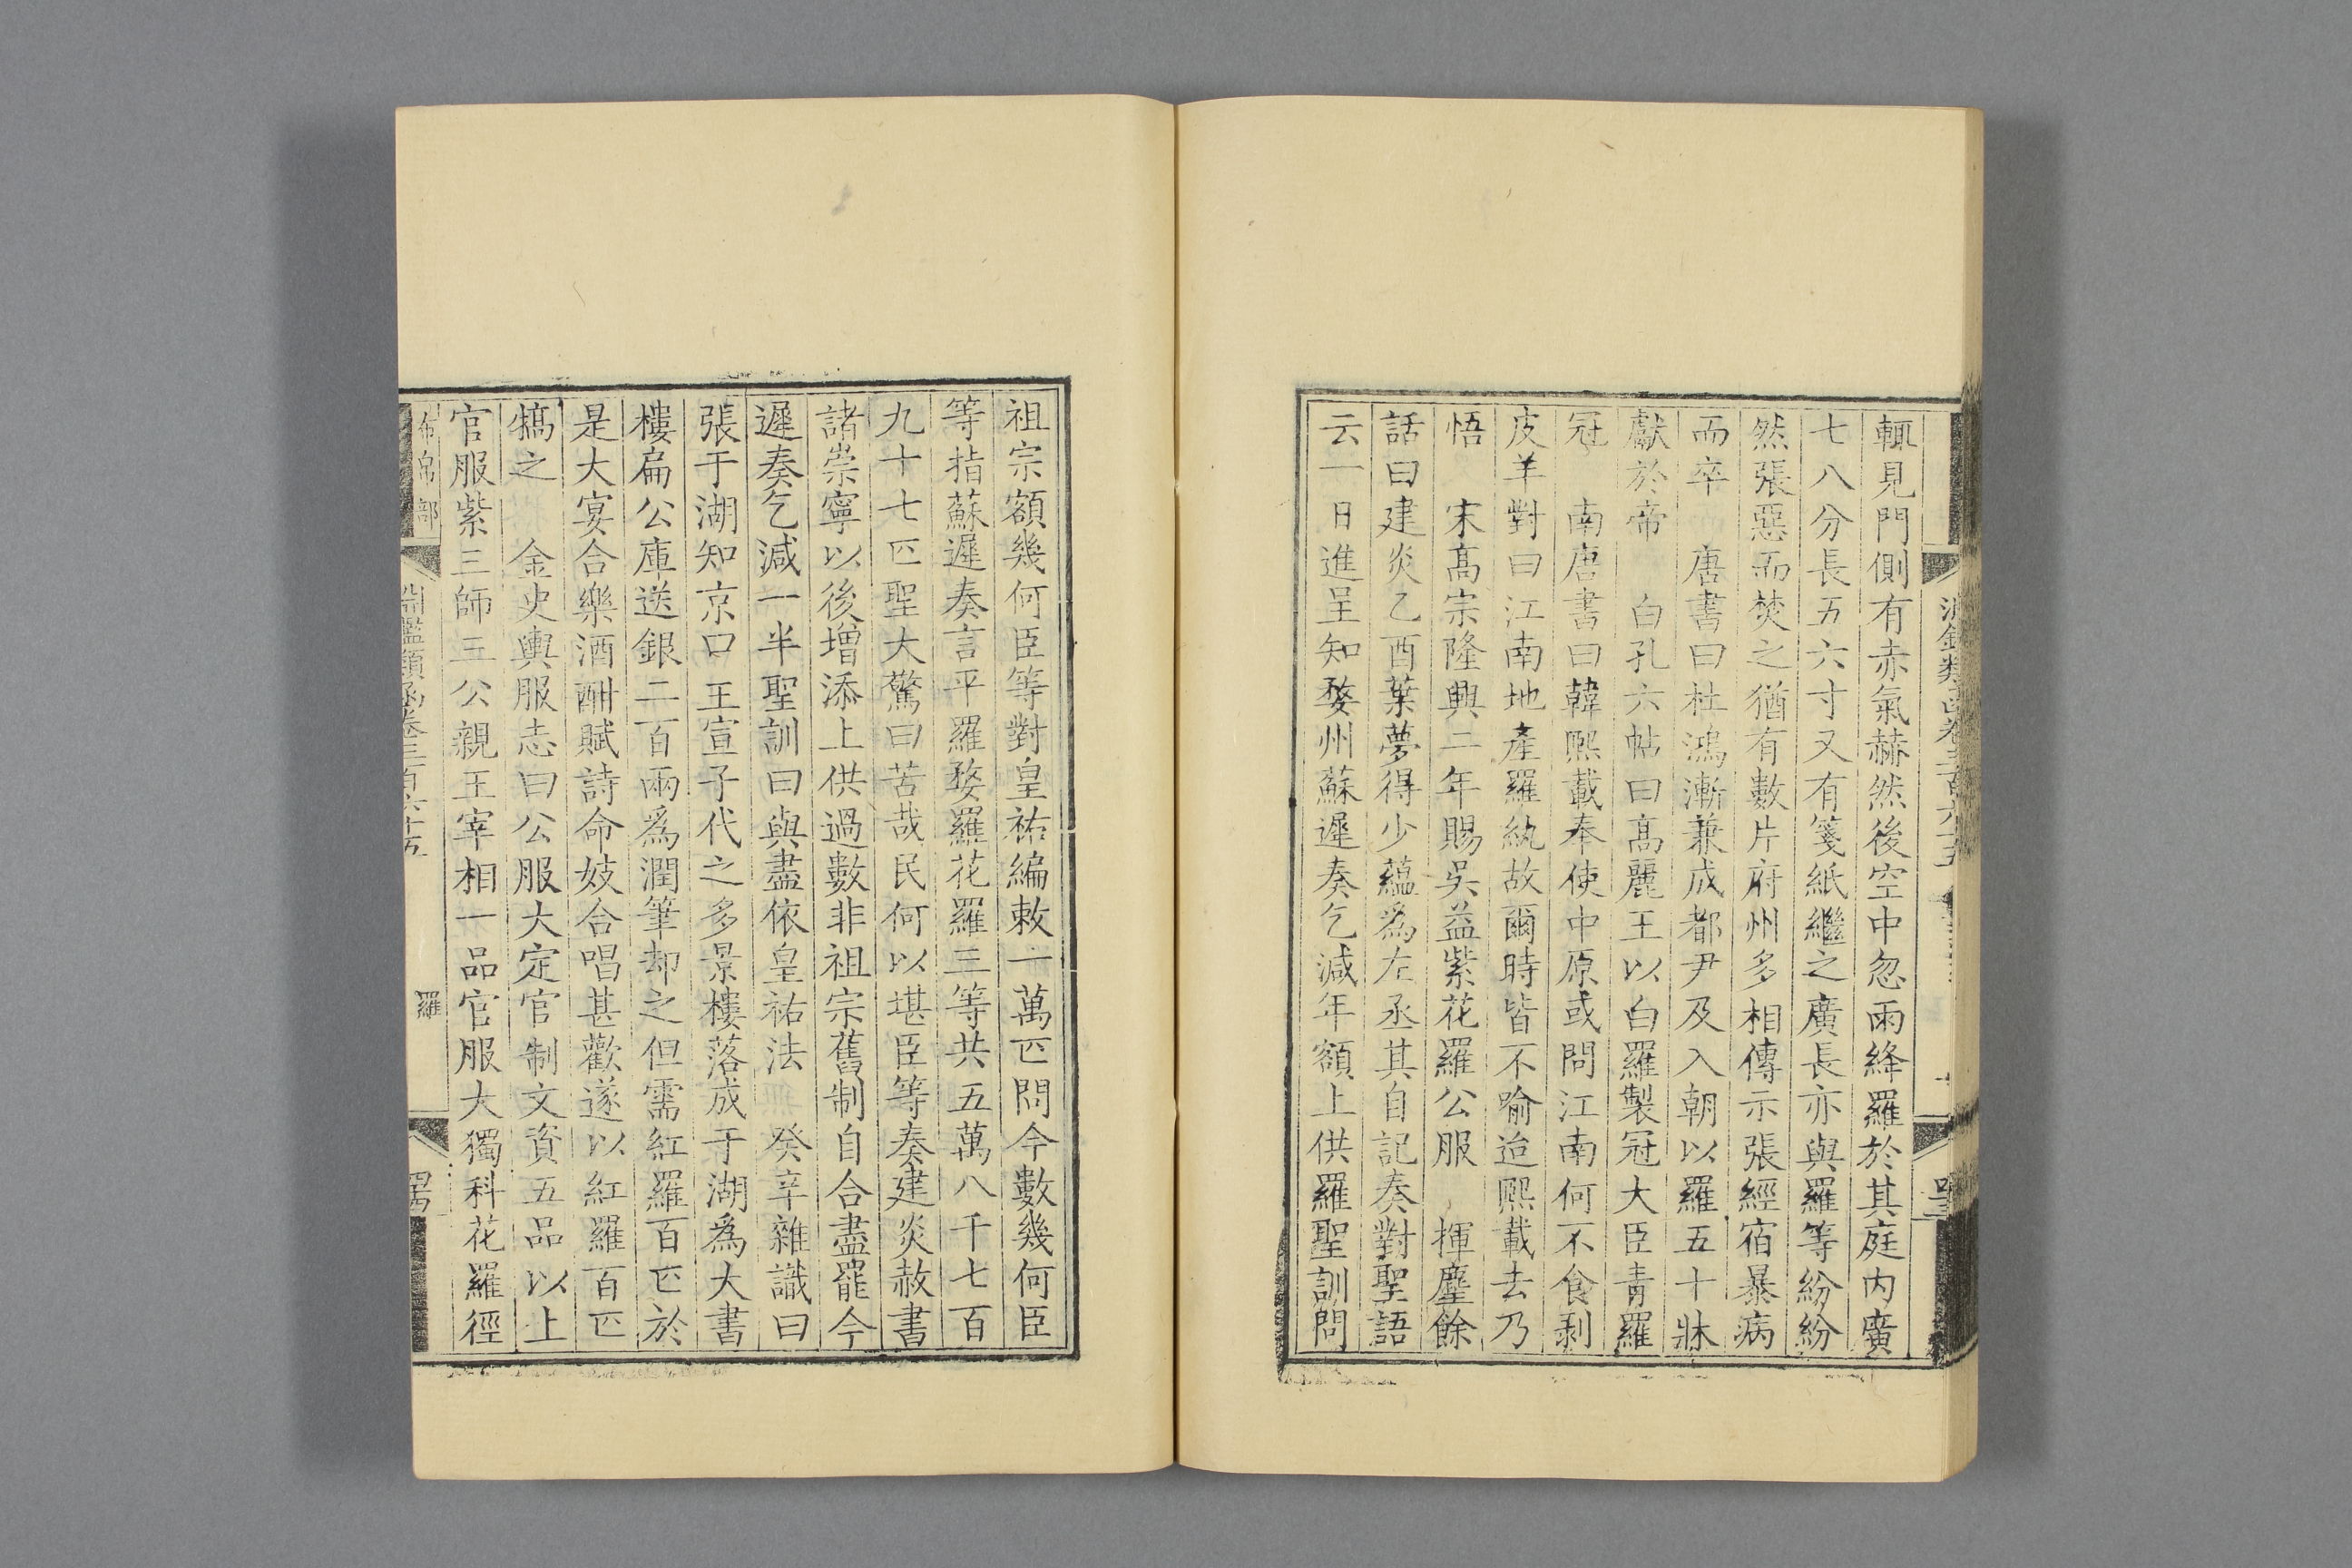 輒見門側有赤氣赫然後空中忽雨絳羅於其庭内廣
七八分長五六寸又有箋紙繼之廣長亦與羅等紛紛
然張惡而焚之猶有數片府州多相傳示張經宿暴病
而卒 唐書曰杜鴻漸兼成都尹及入朝以羅五十牀
獻於帝 白孔六帖曰髙麗王以白羅製冠大臣青羅
冠 南唐書曰韓熙載奉使中原或問江南何不食剥
皮羊對曰江南地產羅紈故爾時皆不喻迨熙載去乃
悟 宋髙宗隆興二年賜吳益紫花羅公服 揮麈餘
話曰建炎乙酉葉夢得少藴爲左丞其自記奏對聖語
云一日進呈知婺州蘇遲奏乞減年額上供羅聖訓問
祖宗額幾何臣等對皇祐編敕一萬匹問今數幾何臣
等指蘇遲奏言平羅婺羅花羅三等共五萬八千七百
九十七匹聖大驚曰苦哉民何以堪臣等奏建炎赦書
諸崇寧以後增添上供過數非祖宗舊制自合盡罷今
遲奏乞減一半聖訓曰與盡依皇祐法 癸辛雜識曰
張于湖知京口王宣子代之多景樓落成于湖爲大書
樓扁公庫送銀二百兩爲潤筆却之但需紅羅百匹於
是大宴合樂酒酣賦詩命妓合唱甚歡遂以紅羅百匹
犒之 金史輿服志曰公服大定官制文資五品以上
官服紫三師三公親王宰相一品官服大獨科花羅徑
布帛部
淵鑑類函卷三百六十五
羅